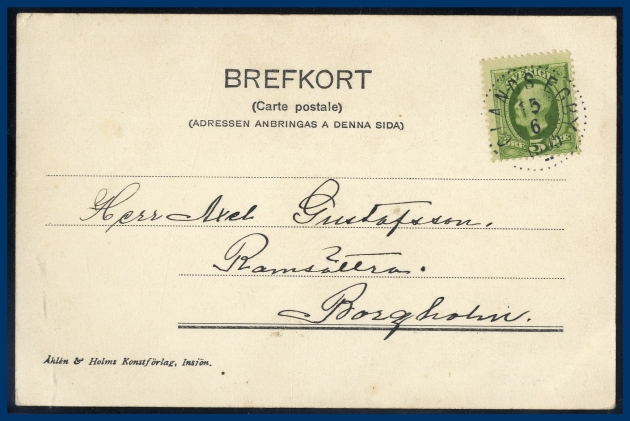 BREFKORT
(Carte postale)
(ADRESSEN ANBRINGAS A DENNA SIDA)
SVERIGE
15
6
5
Herr Axel Gustafsson.
Ramsättra.
Borgholm.
Åhlén & Holms Konstförlag, Insjön.